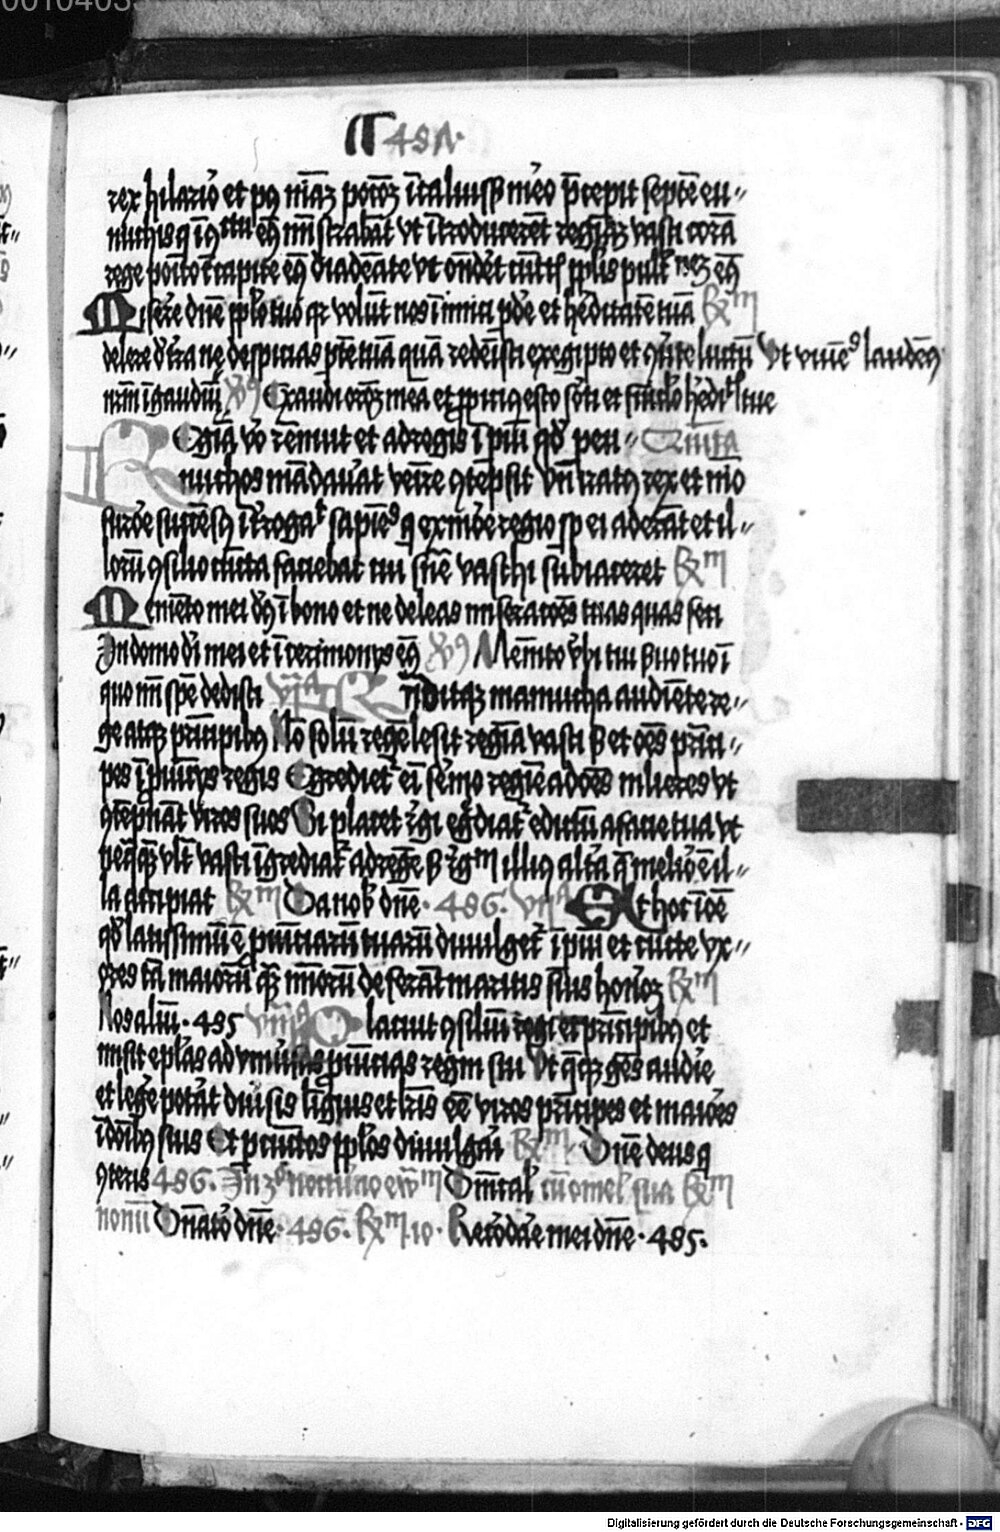 00104033
487.
rex hilariꝰ et pꝰ nimiāꝫ potōꝫ īcaluissꝫ mēo p̄cepit septē eu-
nuchis q̄ ī ꝯctu eiꝰ mīstrabāt vt ītroducerēt regināꝫ vasti corā
rege poīto ī capite eiꝰ diademate vt onderet cūctis pplis pulcr eiꝰ
Miserere dn̄e pplo tuo qꝛ volūt nos inimici pdere et hereditatē tuā R̄m
delere ne despicias ptē tuā quā redemisti ex egipto et ꝯuerte luctū vt viuētes laudemꝰ
nrm̄ ī gaudiū Exaudi orōꝫ meā et ppiciꝰ esto sorti et funiculo hereditatis tue
Regīa vo renuit et ad regis īpiū qd̄ peu- Quinta
nuchos mādauerat venire ꝯtēpsit Vn̄ iratꝰ rex et nimio
furore succēsus īterrogauit sapiētes q̄ ex more regio semp ei aderāt et il-
lorū ꝯsilio cūcta faciebat cui sn̄e vasthi subiaceret R̄m
Memēto mei ds̄ ī bono et ne deleas miseratōes meas quas feci
In domo dei mei et ī cerimoniis eiꝰ Memēto vbi tui seruo tuo ī
quo mi spē dedisti Rn̄ditqꝫ mamucha audiente re-
ge atqꝫ prīcipibꝰ Nō solū regē lesit regīa vasti sꝫ et oēs prīci-
pes ī puīciis regis Egrediet ei sermo regine ad oēs mulieres vt
ꝯtēpnāt viros suos Si placet regi egrediatur edictū a facie tua vt
neqqꝫ vlt vasti īgrediatur ad regē sꝫ regnū illius altera q̄ melior ē il-
la accipiat R̄m Da nob dn̄e. 486. Et hoc ī oē
qd̄ latissimū ē prouīciarū tuarū diuulget īpiū et cūcte vx-
ores tā maiorū qꝫ minorū deferāt maritis suis honorē R̄m
Nos aliū. 485 Placuit ꝯsiliū regi et prīcipibꝰ et
misit eplas ad vniūsas prouīcias regni sui Vt q̄qꝫ gēs audire
et legere poterat diuersis līguis et lris eē viros prīcipes et maiores
ī domibꝰ suis Et p cūctos pplos diuulgari R̄m Dn̄e deus q̄
ꝯteris 486. In 3o nocturno ew̄m cū omel sua R̄m
nonū Dn̄ator dn̄e. 486. R̄m 10. Recordare mei dn̄e. 485.
Digitalisierung gefördert durch die Deutsche Forschungsgemeinschaft - DFG